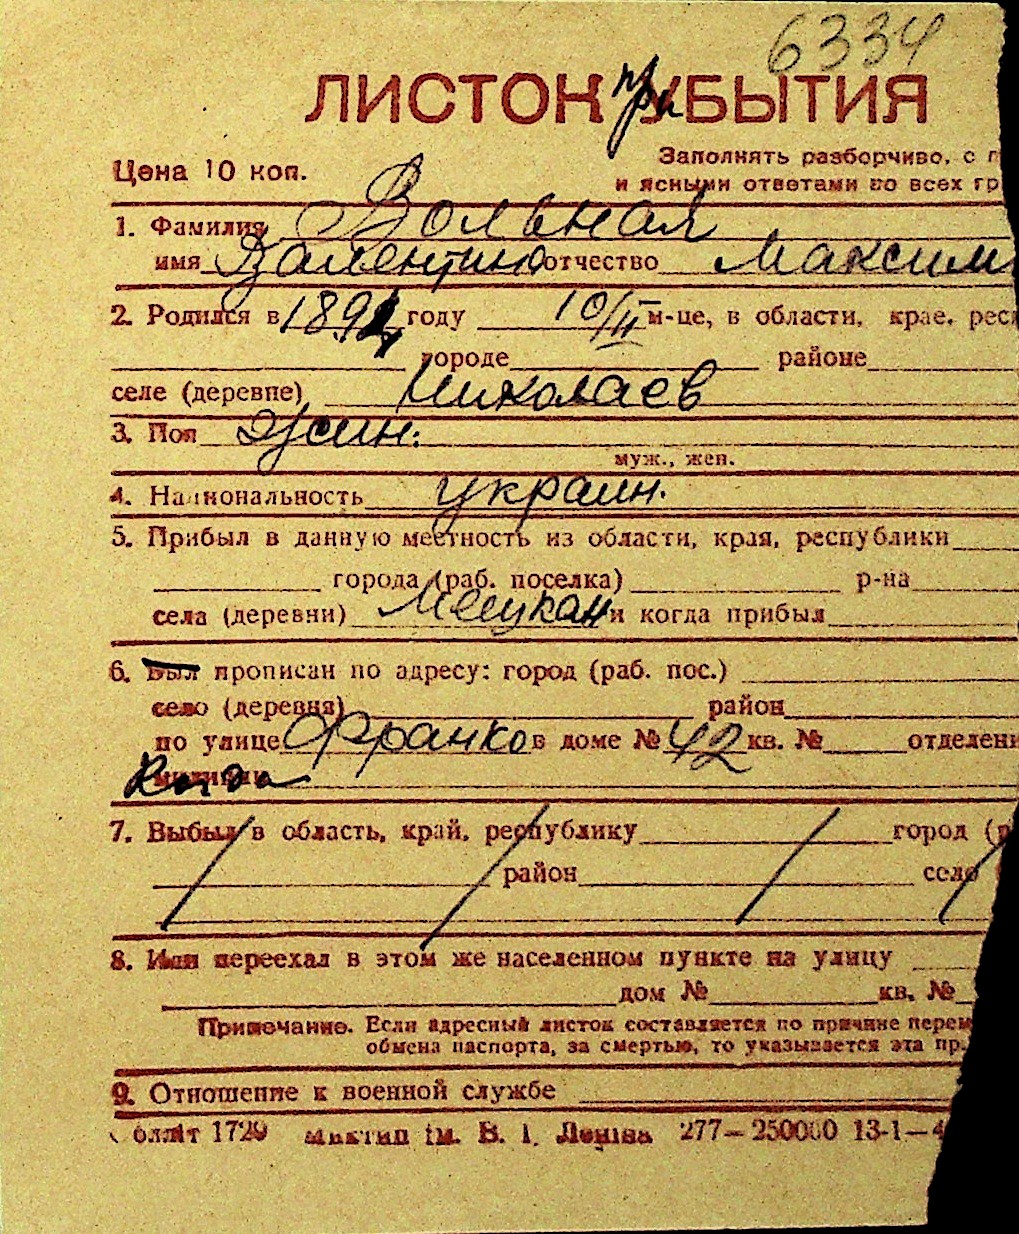 6334
ЛИСТОК при УБЫТИЯ
Цена 10 коп.
Заполнять разборчиво, с п
и ясными ответами во всех гр
1. Фамилия Вольная
имя Валентина отчество Максим
2. Родился в 1892 году 10/II м-це, в области, крае, респ
городе районе
селе (деревне) Николаев
3. Пол жин.
муж., жен.
4. Национальность украин.
5. Прибыл в данную местность из области, края, республики
города (раб. поселка) р-на
села (деревни) и когда прибыл
6. Был прописан по адресу: город (раб. пос.)
село (деревня) район
по улице Франко в доме № 42 кв. № отделени
милиции
7. Выбыл в область, край, республику город (р
район село
8. Или переехал в этом же населенном пункте на улицу
дом № кв. №
Примечание. Если адресный листок составляется по причине перем
обмена паспорта, за смертью, то указывается эта пр
9. Отношение к военной службе
облліт 1729 ім. В. І. Леніна 277—250000 13-1—4